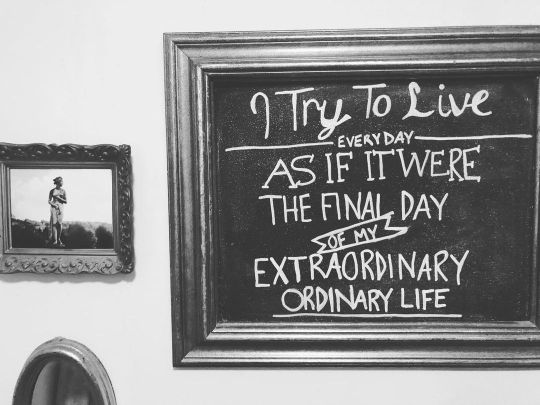 I Try To Live
EVERYDAY
AS IF IT WERE
THE FINAL DAY
OF MY
EXTRAORDINARY
ORDINARY LIFE